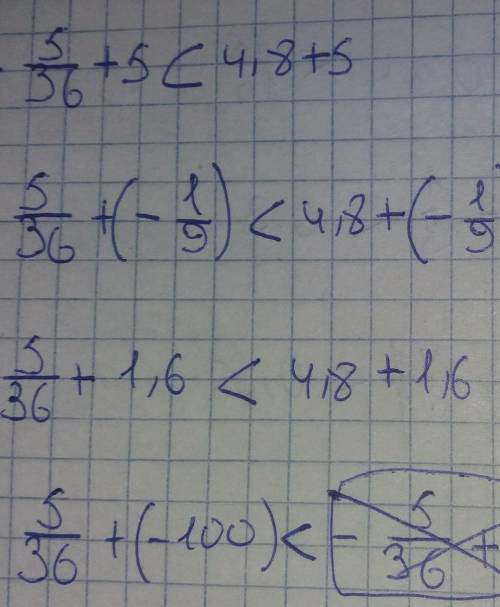 - 5/36 + 5 < 4,8 + 5
5/36 + (- 1/9) < 4,8 + (- 1/9
5/36 + 1,6 < 4,8 + 1,6
5/36 + (-100) < - 5/36 +